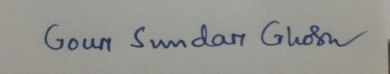 Gour Sundar Ghosh